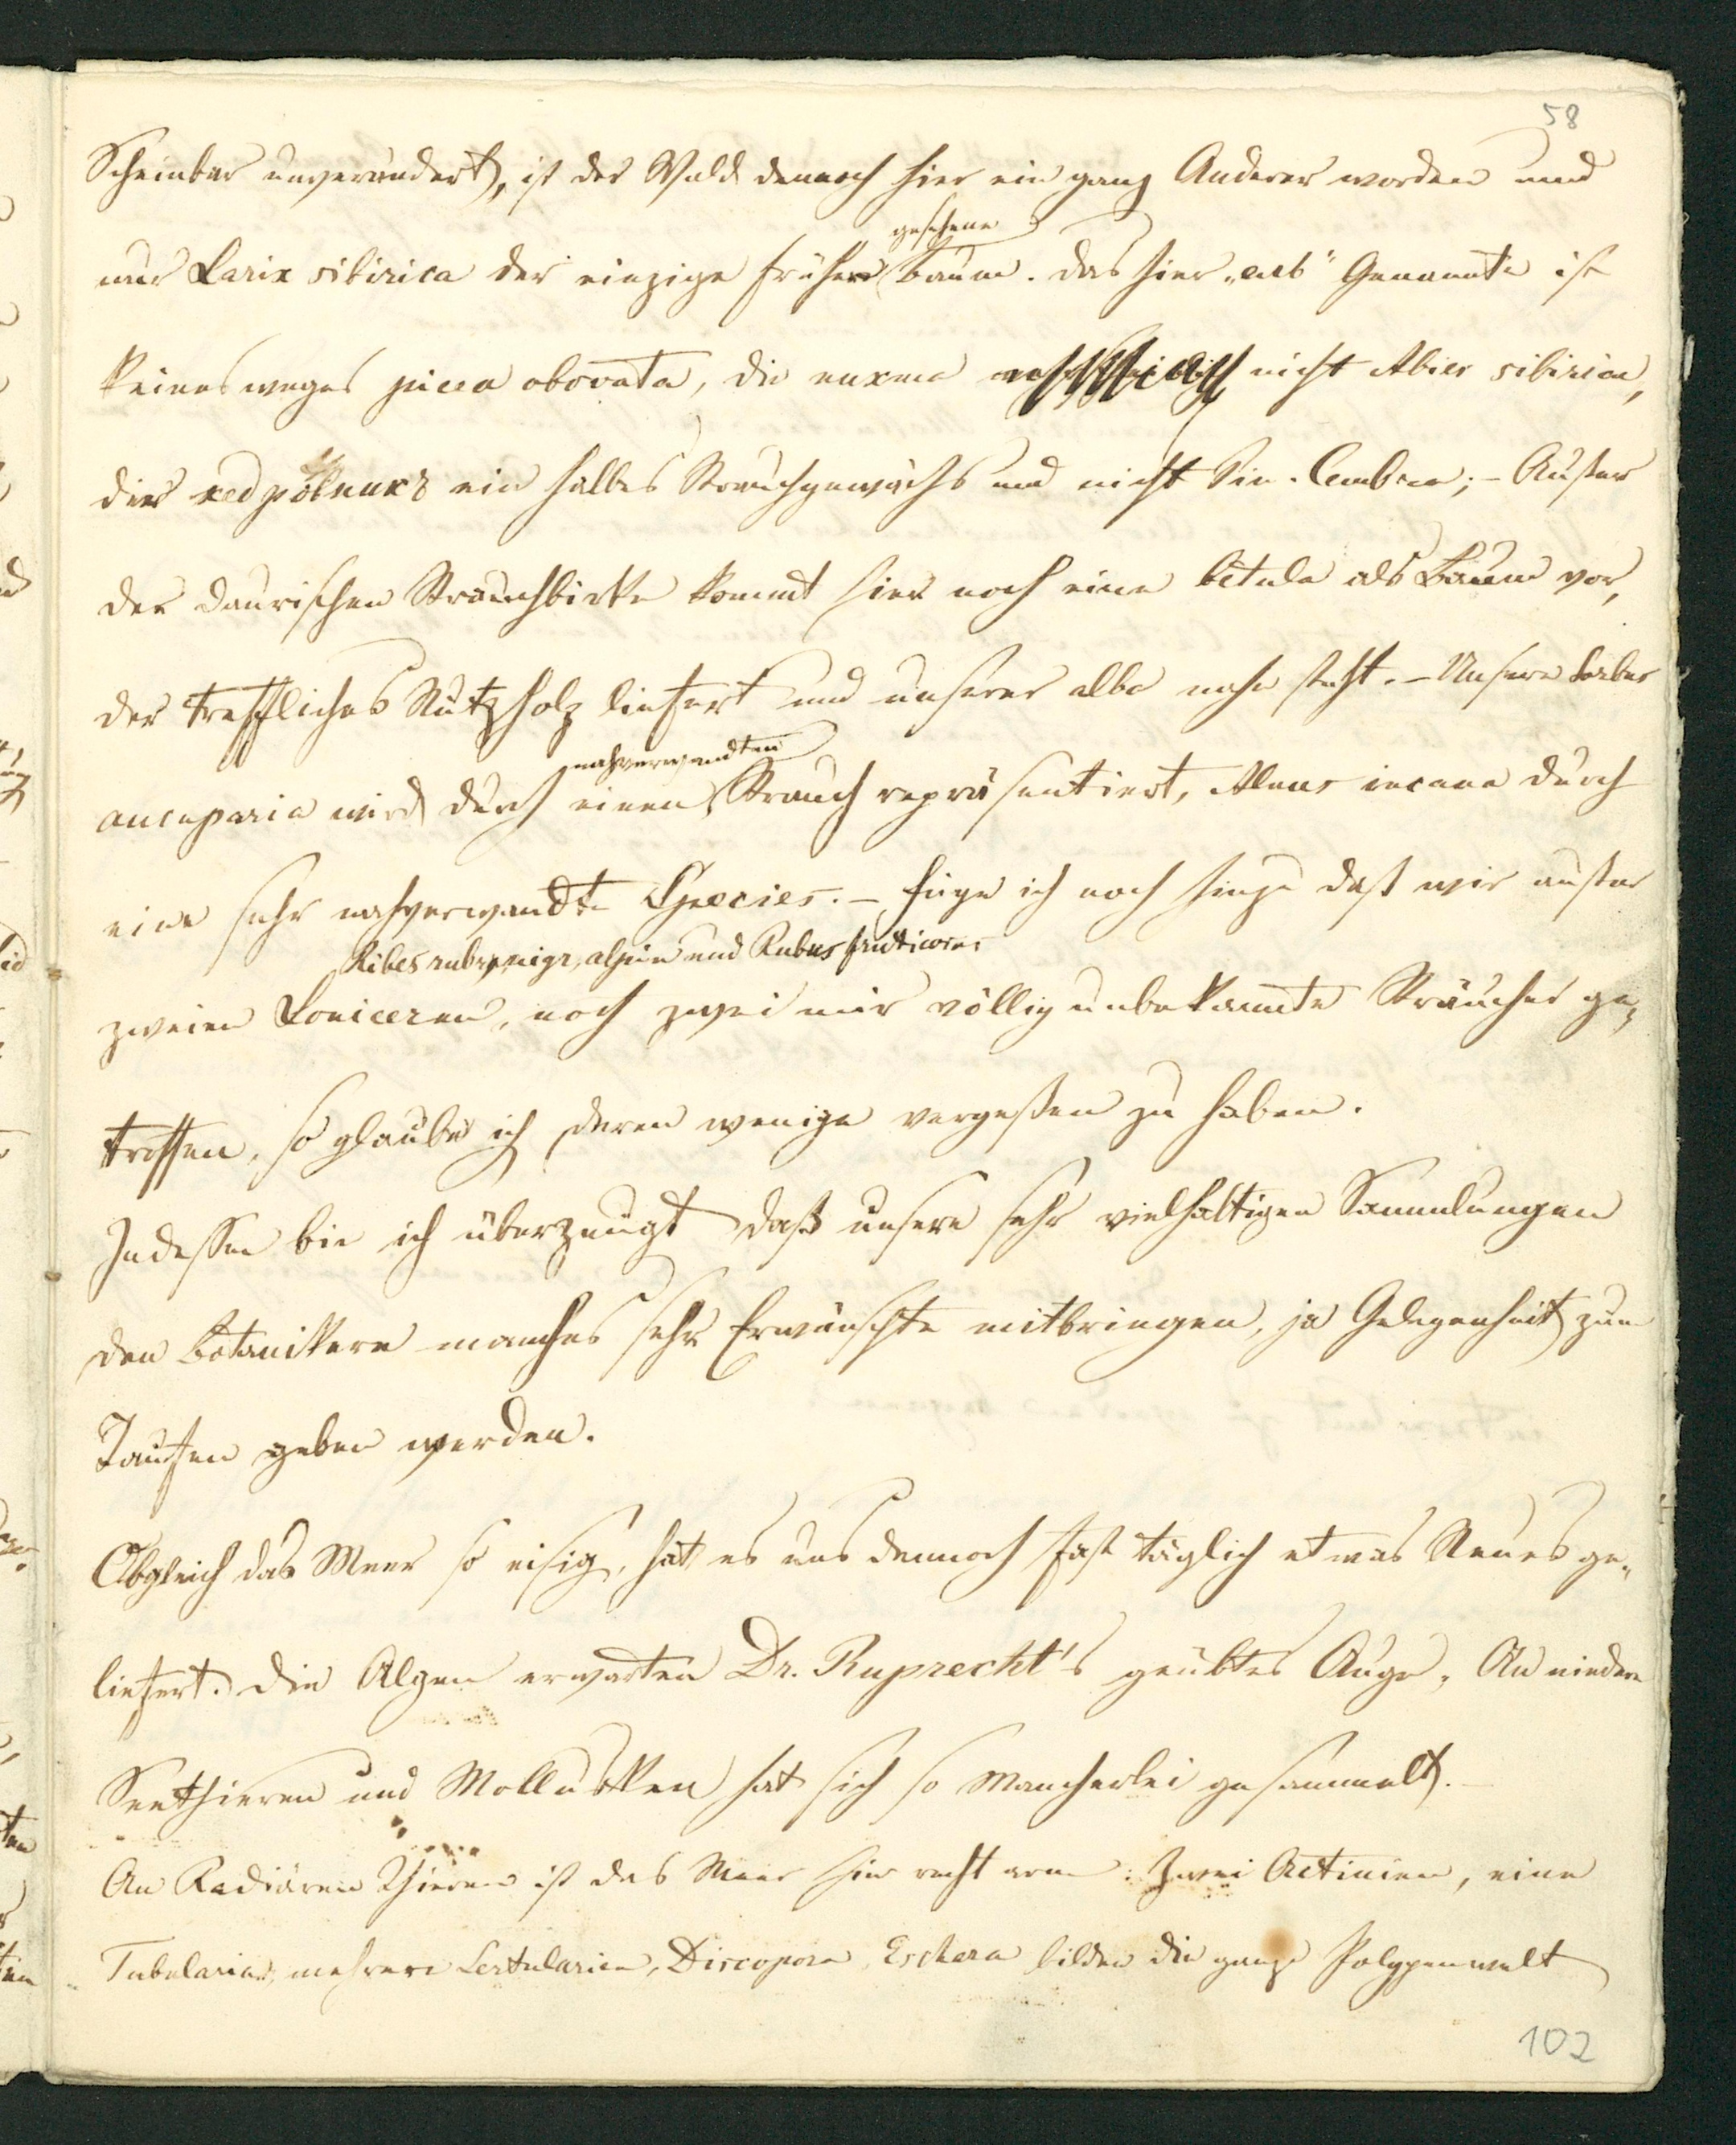 58
Scheinbar unverändert, ist der Wald dennoch hier ein ganz Anderer worden und
gesehene
nur Larix sibirica der einzige früher Baum. Das hier „ель“ Genannte ist
keinesweges picea obovata, die пихта nicht Abies sibirica,
der кедровникъ ein halbes Strauchgewächs und nicht Pin. Cembra; - Außer
der daurischen Strauchbirke kommt hier noch eine betula als Baum vor,
der treffliches Nutzholz liefert und unserer alba nahe steht. - Unsere Sorbus
nahverwandten
aucuparia wird durch einen Strauch repräsentiert, Alnus incana durch
eine sehr nahverwandte Species. - Füge ich noch hinzu daß wir außer
Ribes rubr, nigr, alpin und Rubus fruticosus
zweien Loniceren, noch zwei mir völlig unbekannte Sträucher ge-
troffen, so glaube ich deren wenige vergeßen zu haben.
Indessen bin ich überzeugt daß unsere sehr vielhaltigen Sammlungen
den Botanikern manches sehr Erwünschte mitbringen, ja Gelegenheit zum
Taufen geben werden.
Obgleich das Meer so eisig, hat es uns dennoch fast täglich etwas Neues ge-
liefert. Die Algen erwarten Dr. Ruprecht's geübtes Auge, An niedern
Seethieren und Mollusken hat sich so Mancherlei gesammelt. -
An Radiären Thieren ist das Meer hier recht arm: Zwei Actinien, eine
Tubularia, mehrere Sertularien, Discopora, Eschara bilden die ganze Polypenwelt
102